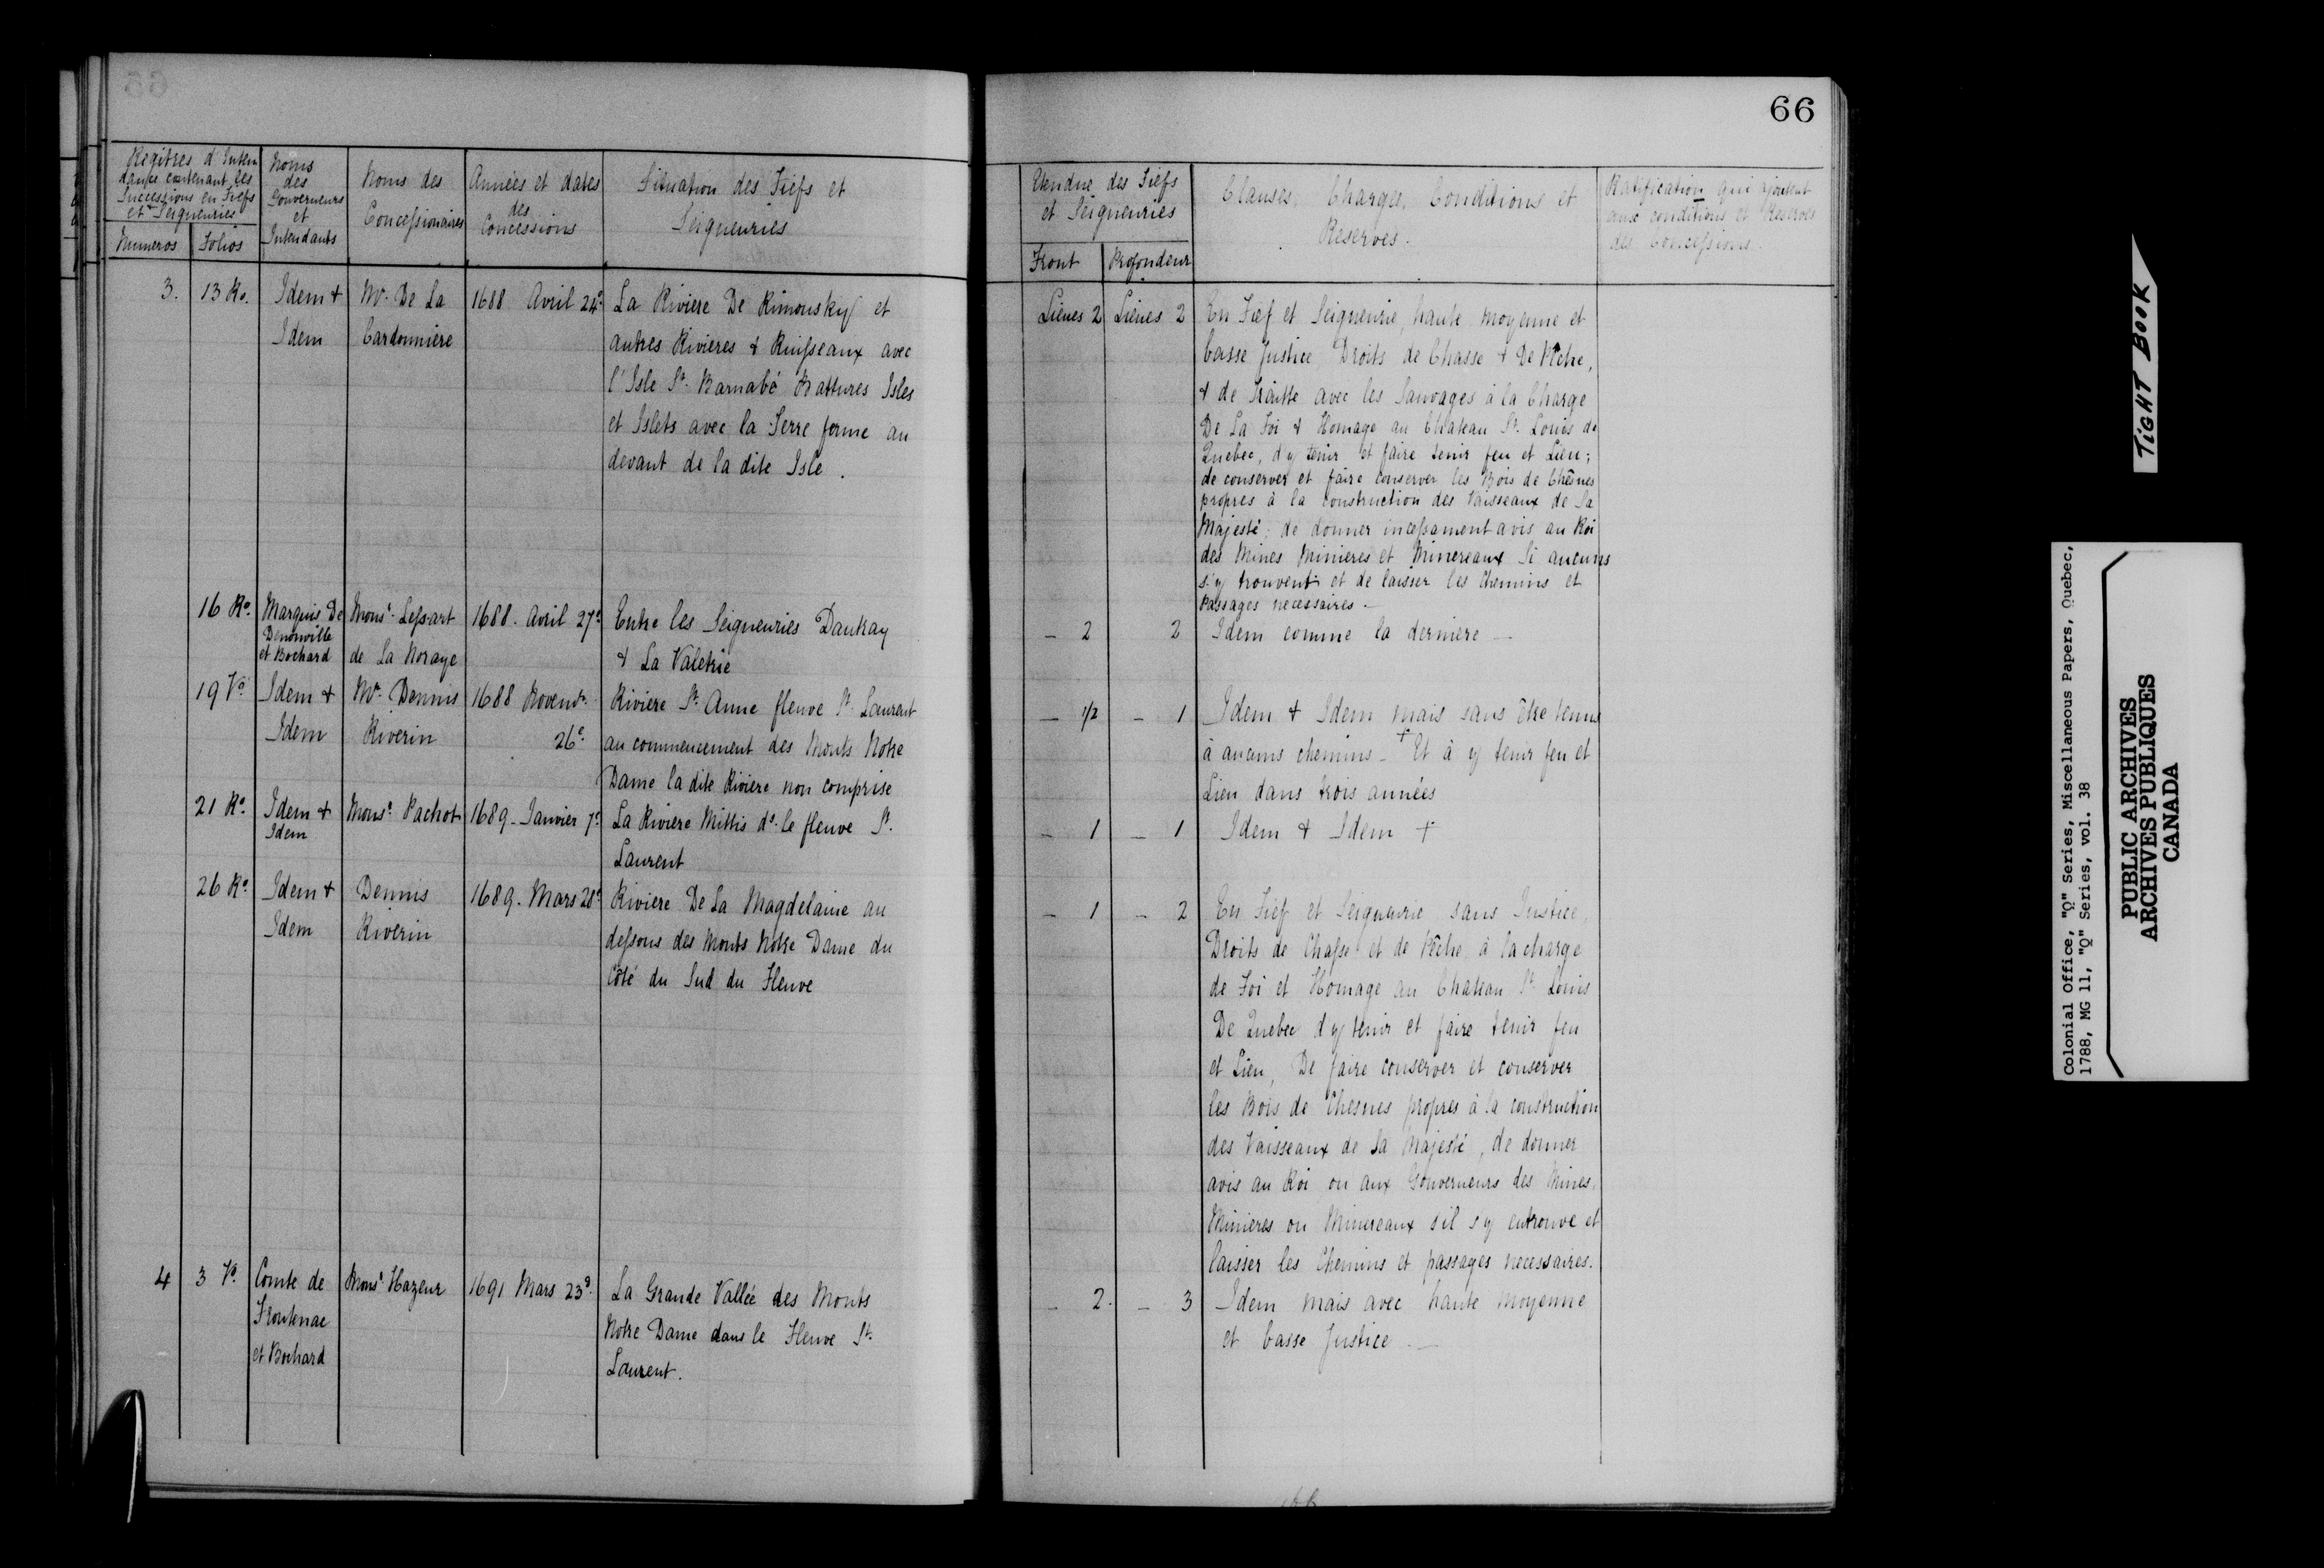 66
Regîtres d'Inten
dance contenant les
Successions en Fiefs
et Seigneuries
Numeros
Folios
Noms
des
Gouverneurs
et
Intendants
Noms des
Concessionaires
Années et dates
des
Concessions
Situation des Fiefs et
Seigneuries
Etendue des Fiefs
et Seigneuries
Front
Profondeur
Clauses, Charges, Conditions et
Reserves.
Ratification qui ajoutent
aux conditions et Reserves
des Concessions.
3. 13 Ro. Idem &
Idem
Mr. De La
Cardonniere
1688 Avril 24e
La Riviere De Rimousky et
autres Rivieres & Ruisseaux avec
l'Isle St. Barnabé Battures Isles
et Islets avec la Terre ferme au
devant de la dite Isle.
Lieues 2 Lieues 2
En Fief et Seigneurie, haute moyenne et
basse Justice Droits de Chasse & De Pêche,
& de Traitte avec les Sauvages à la Charge
De La Foi & Homage au Chateau St. Louis de
Quebec, d'y tenir et faire tenir feu et Lieu;
de conserver et faire conserver les Bois de Chênes
propres à la construction des Vaisseaux de Sa
Majesté; de donner incessament avis au Roi
des Mines Minieres et Minereaux Si aucuns
s'y trouvent et de laisser les Chemins et
Passages necessaires.—
16 Ro. Marquis De
Denonville
et Bochard
Monsr. Lessart
de La Noraye
1688. Avril 27e
Entre les Seigneuries Dautray
& La Valetrie
— 2 2 Idem comme la derniere —
19 Vo. Idem &
Idem
Mr. Dennis
Riverin
1688 Novembr.
26e.
Riviere St. Anne fleuve St. Laurent
au commencement des Monts Notre
Dame la dite Riviere non comprise
— 1/2 — 1 Idem & Idem mais sans être tenus
à aucuns chemins — + Et à y tenir feu et
Lieu dans trois années
21 Ro. Idem &
Idem
Monsr. Pachot
1689 - Janvier 7e.
La Riviere Mittis ds. le fleuve St.
Laurent
— 1 — 1 Idem & Idem +
26 Ro. Idem &
Idem
Dennis
Riverin
1689. Mars 28e
Riviere De La Magdelaine au
dessous des Monts Notre Dame du
Côté du Sud du Fleuve
— 1 — 2 En Fief et Seigneurie sans Justice,
Droits de Chasse et de Pêche à la charge
de Foi et Homage au Chateau St. Louis
De Quebec d'y tenir et faire tenir feu
et Lieu, De faire conserver et conserver
les Bois de Chesnes propres à la construction
des Vaisseaux de Sa Majesté, de donner
avis au Roi ou aux Gouverneurs des Mines,
Minieres ou Minereaux s'il s'y entrouve et
laisser les Chemins et passages necessaires.
4 3 Vo. Comte de
Frontenac
et Bochard
Monsr. Hazeur
1691 Mars 23e.
La Grande Vallée des Monts
Notre Dame dans le Fleuve St.
Laurent.
— 2. — 3 Idem mais avec haute Moyenne
et basse Justice —
TIGHT BOOK
Colonial Office, "Q" Series, Miscellaneous Papers, Quebec,
1788, MG 11, "Q" Series, vol. 38
PUBLIC ARCHIVES
ARCHIVES PUBLIQUES
CANADA